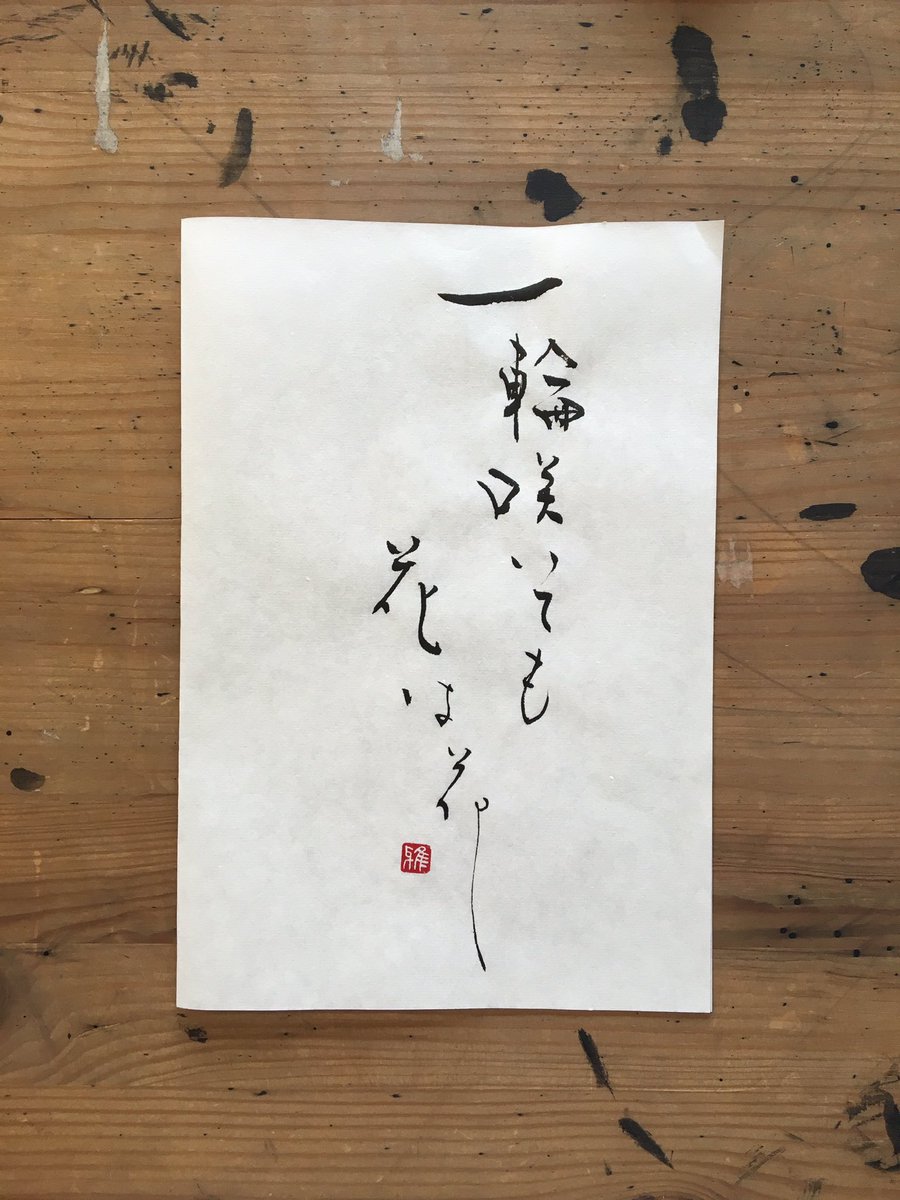 一輪咲いても
花は花
雅